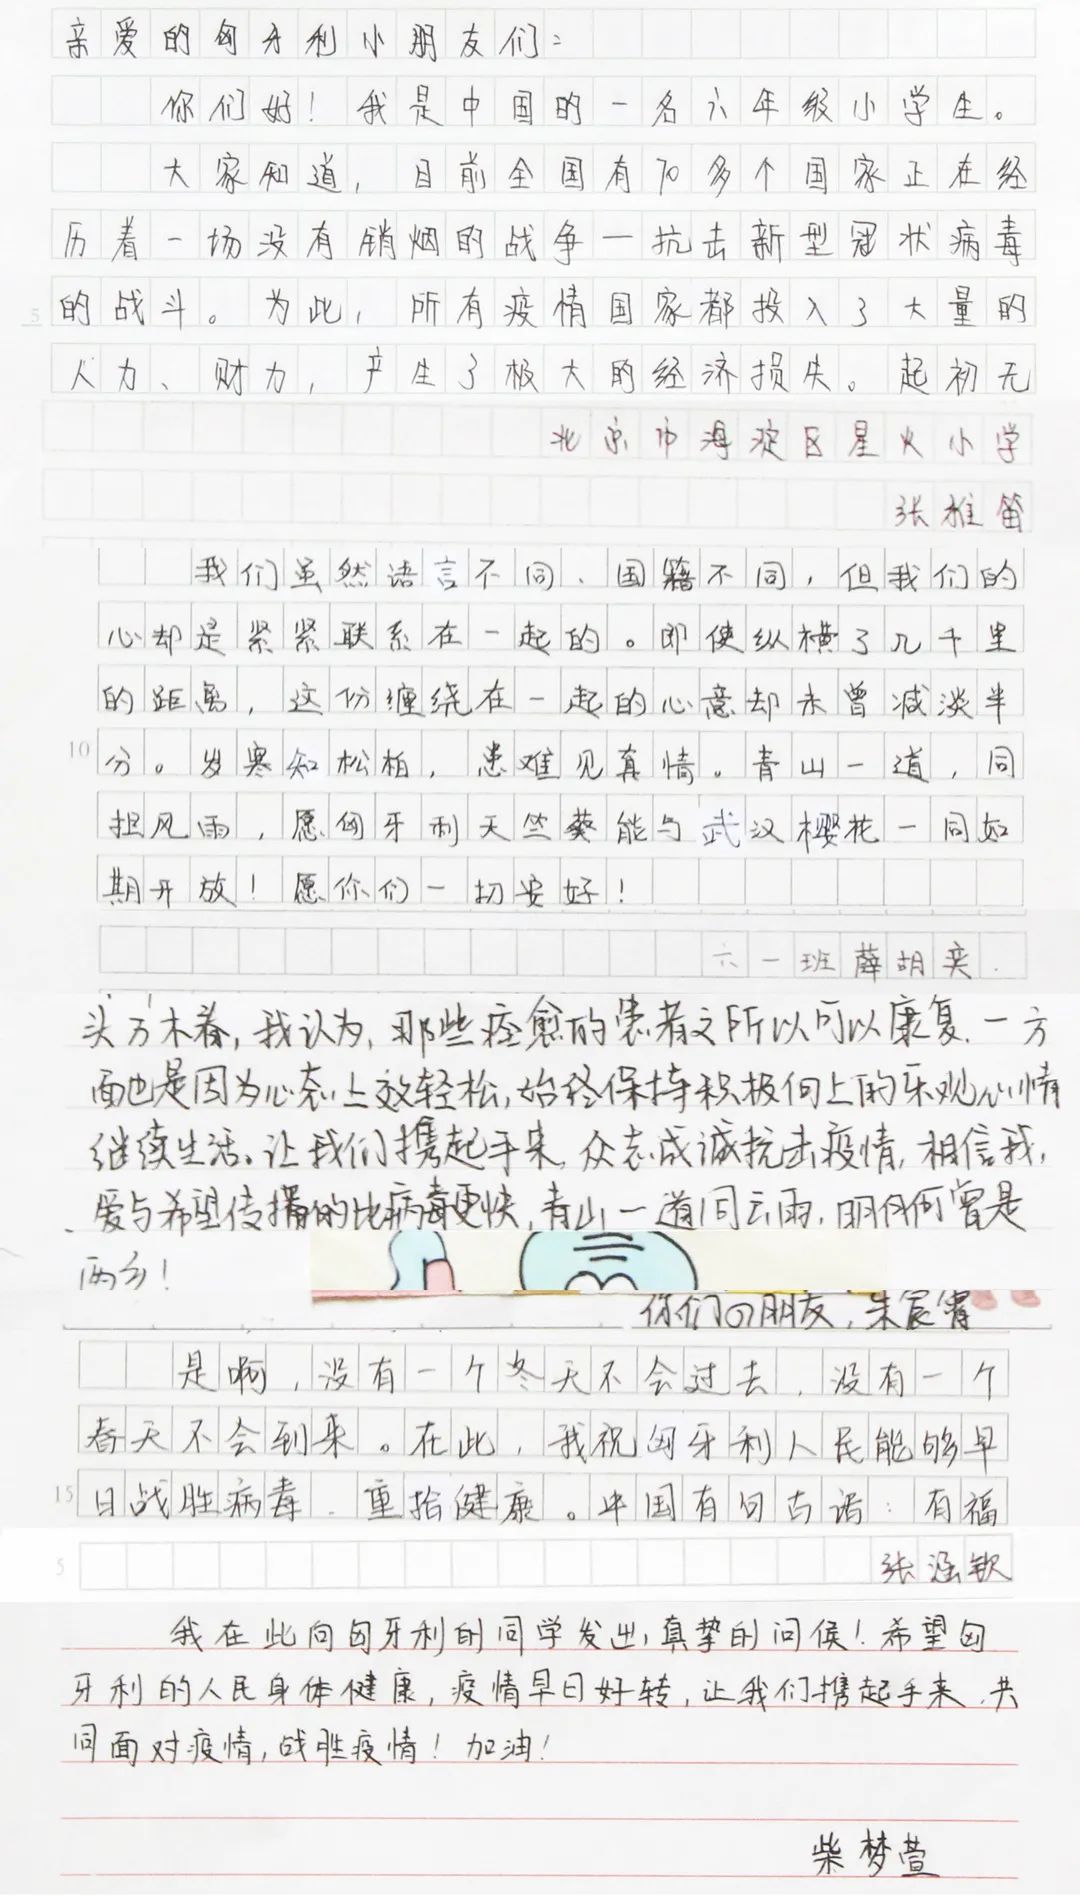 亲爱的匈牙利小朋友们：
你们好！我是中国的一名六年级小学生。
大家知道，目前全国有70多个国家正在经
历着一场没有销烟的战争一抗去新型冠状病毒
5
的战斗。为此，所有疫情国家都投入了大量的
人力、财力，产生了极大的经济损失。起初无
北京市海淀区星火小学
张雅笛
我们虽然语言不同、国籍不同，但我们的
心却是紧紧联系在一起的。即使纵横了几千里
的距离，这份缠绕在一起的心意却未曾减淡半
10
分。岁寒知松柏，患难见真情。青山一道，同
担风雨，愿匈牙利天竺葵能与武汉樱花一同如
期开放！愿你们一切安好！
六一班薛胡奕
头万木春，我认为，那些痊愈的患者之所以可以康复，一方
面也是因为心态上效轻松，始终保持积极向上的乐观心情
继续生活。让我们携起手来，众志成诚抗击疫情，相信我，
爱与希望传播的比病毒更快，青山一道同云雨，明月何曾是
两乡！
你们的朋友，朱宸霄
是啊，没有一个冬天不会过去，没有一个
春天不会到来。在此，我祝匈牙利人民能够早
15
日战胜病毒、重拾健康。中国有句古语：有福
5
张涵钦
我在此向匈牙利的同学发出，真挚的问候！希望匈
牙利的人民身体健康，疫情早日好转，让我们携起手来，共
同面对疫情，战胜疫情！加油！
柴梦萱